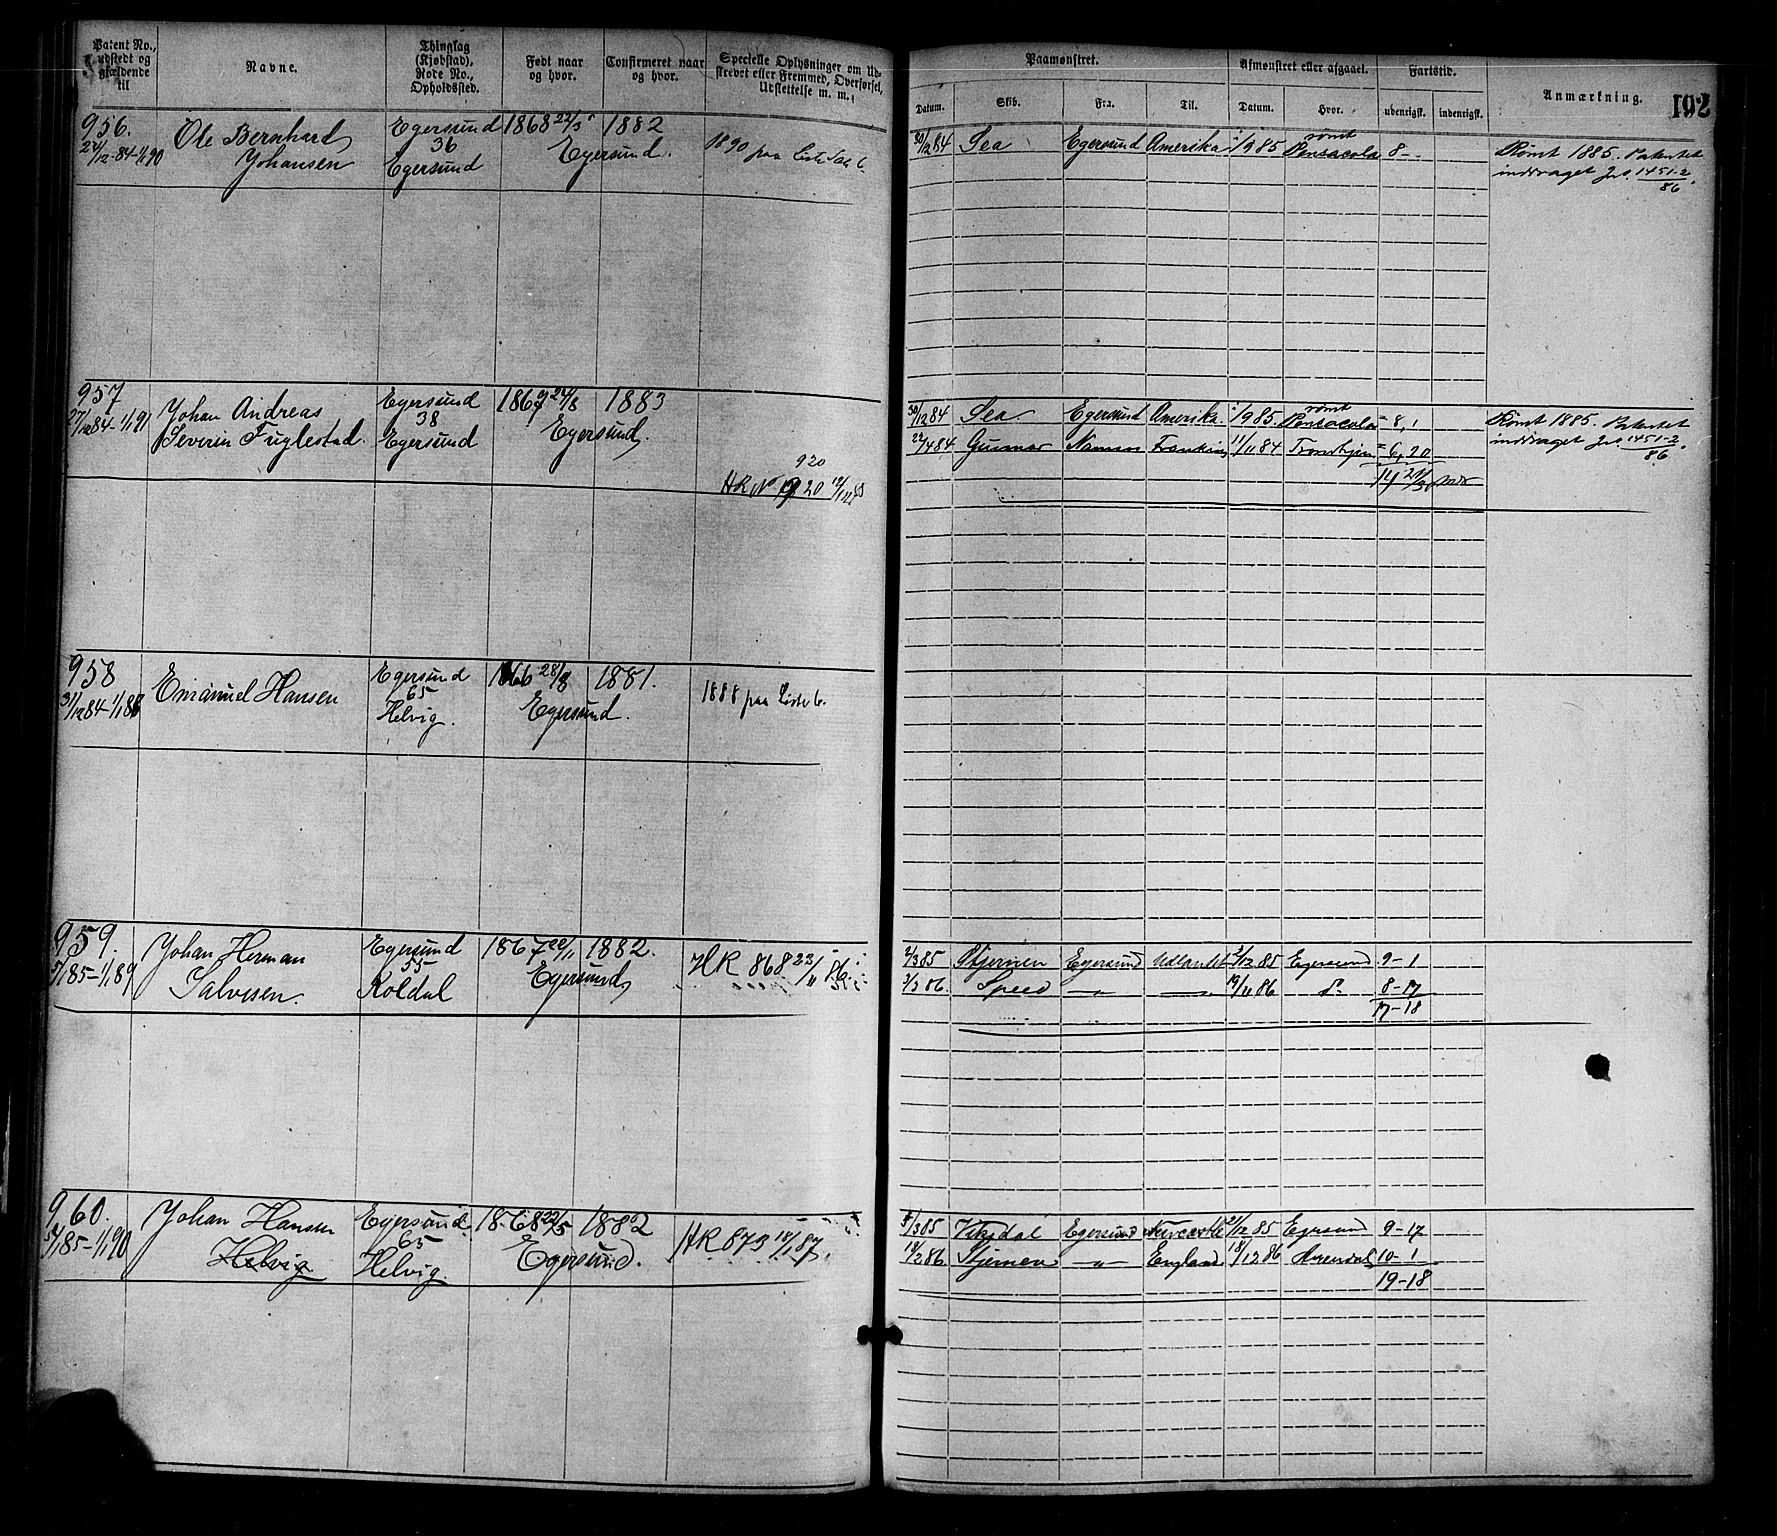 Patent No., udstedt og gjældende til
Navne.
Thinglag (Kjøbstad), Rode No., Opholdssted.
Født naar og hvor.
Confirmeret naar og hvor.
Specielle Oplysninger om Udskrevet eller Fremmed, Overførsel, Udslettelse m. m.
Paamønstret.
Afmønstret eller afgaaet.
Fartstid.
Anmærkning.
192
Datum. Skib. Fra. Til. Datum. Hvor. udenrigsk. indenrigsk.
956. Ole Bernhard Egersund 1868 22/3 1882
27/12-84-1/1 90 Johansen 36 Egersund Egersund. 1890 paa Liste
30/12 84 Sea Egersund Amerika 1985 rømt Pensacola 8-
Rømt 1885. Patentet
inddraget Jnl. 1451-2/86.
957 Johan Andreas Egersund 1867 24/8 1883
27/12 84-1/1 91 Severin Fuglestad. 38 Egersund Egersund.
920
HR No 920
30/12 84 Sea Egersund Amerika. 1985. rømt Pensacola 8, 1
22/4 84 Gunnar Namsos 11/11 84 Trondhjem 6, 20
Rømt 1885. Patentet
inddraget Jnl. 1451-2/86.
958 Emanuel Hansen Egersund 1866 28/8 1881.
31/12 84-1/1 88 65 Helvig. Egersund. 1888 paa Liste 6.
959. Johan Herman Egersund 1867 22/11 1882.
5/1 85-1/1 89 Salvesen. 55 Koldal Egersund HR 868 23/11 86
2/3 85 Stjernen Egersund Udlandet 2/12 85 Egersund 9-1
2/3 86. Speed -"- 19/11 86 8-17
17-18
960. Johan Hansen Egersund 1868 22/5 1882
5/1 85-1/1 90 Helvig 65 Helvig Egersund. HR 673 18/1 87.
4/3 85 Egersund Newcastle 21/12 85 Egersund 9-17
18/2 86 Stjernen -"- England 18/12 86 10-1
19-18